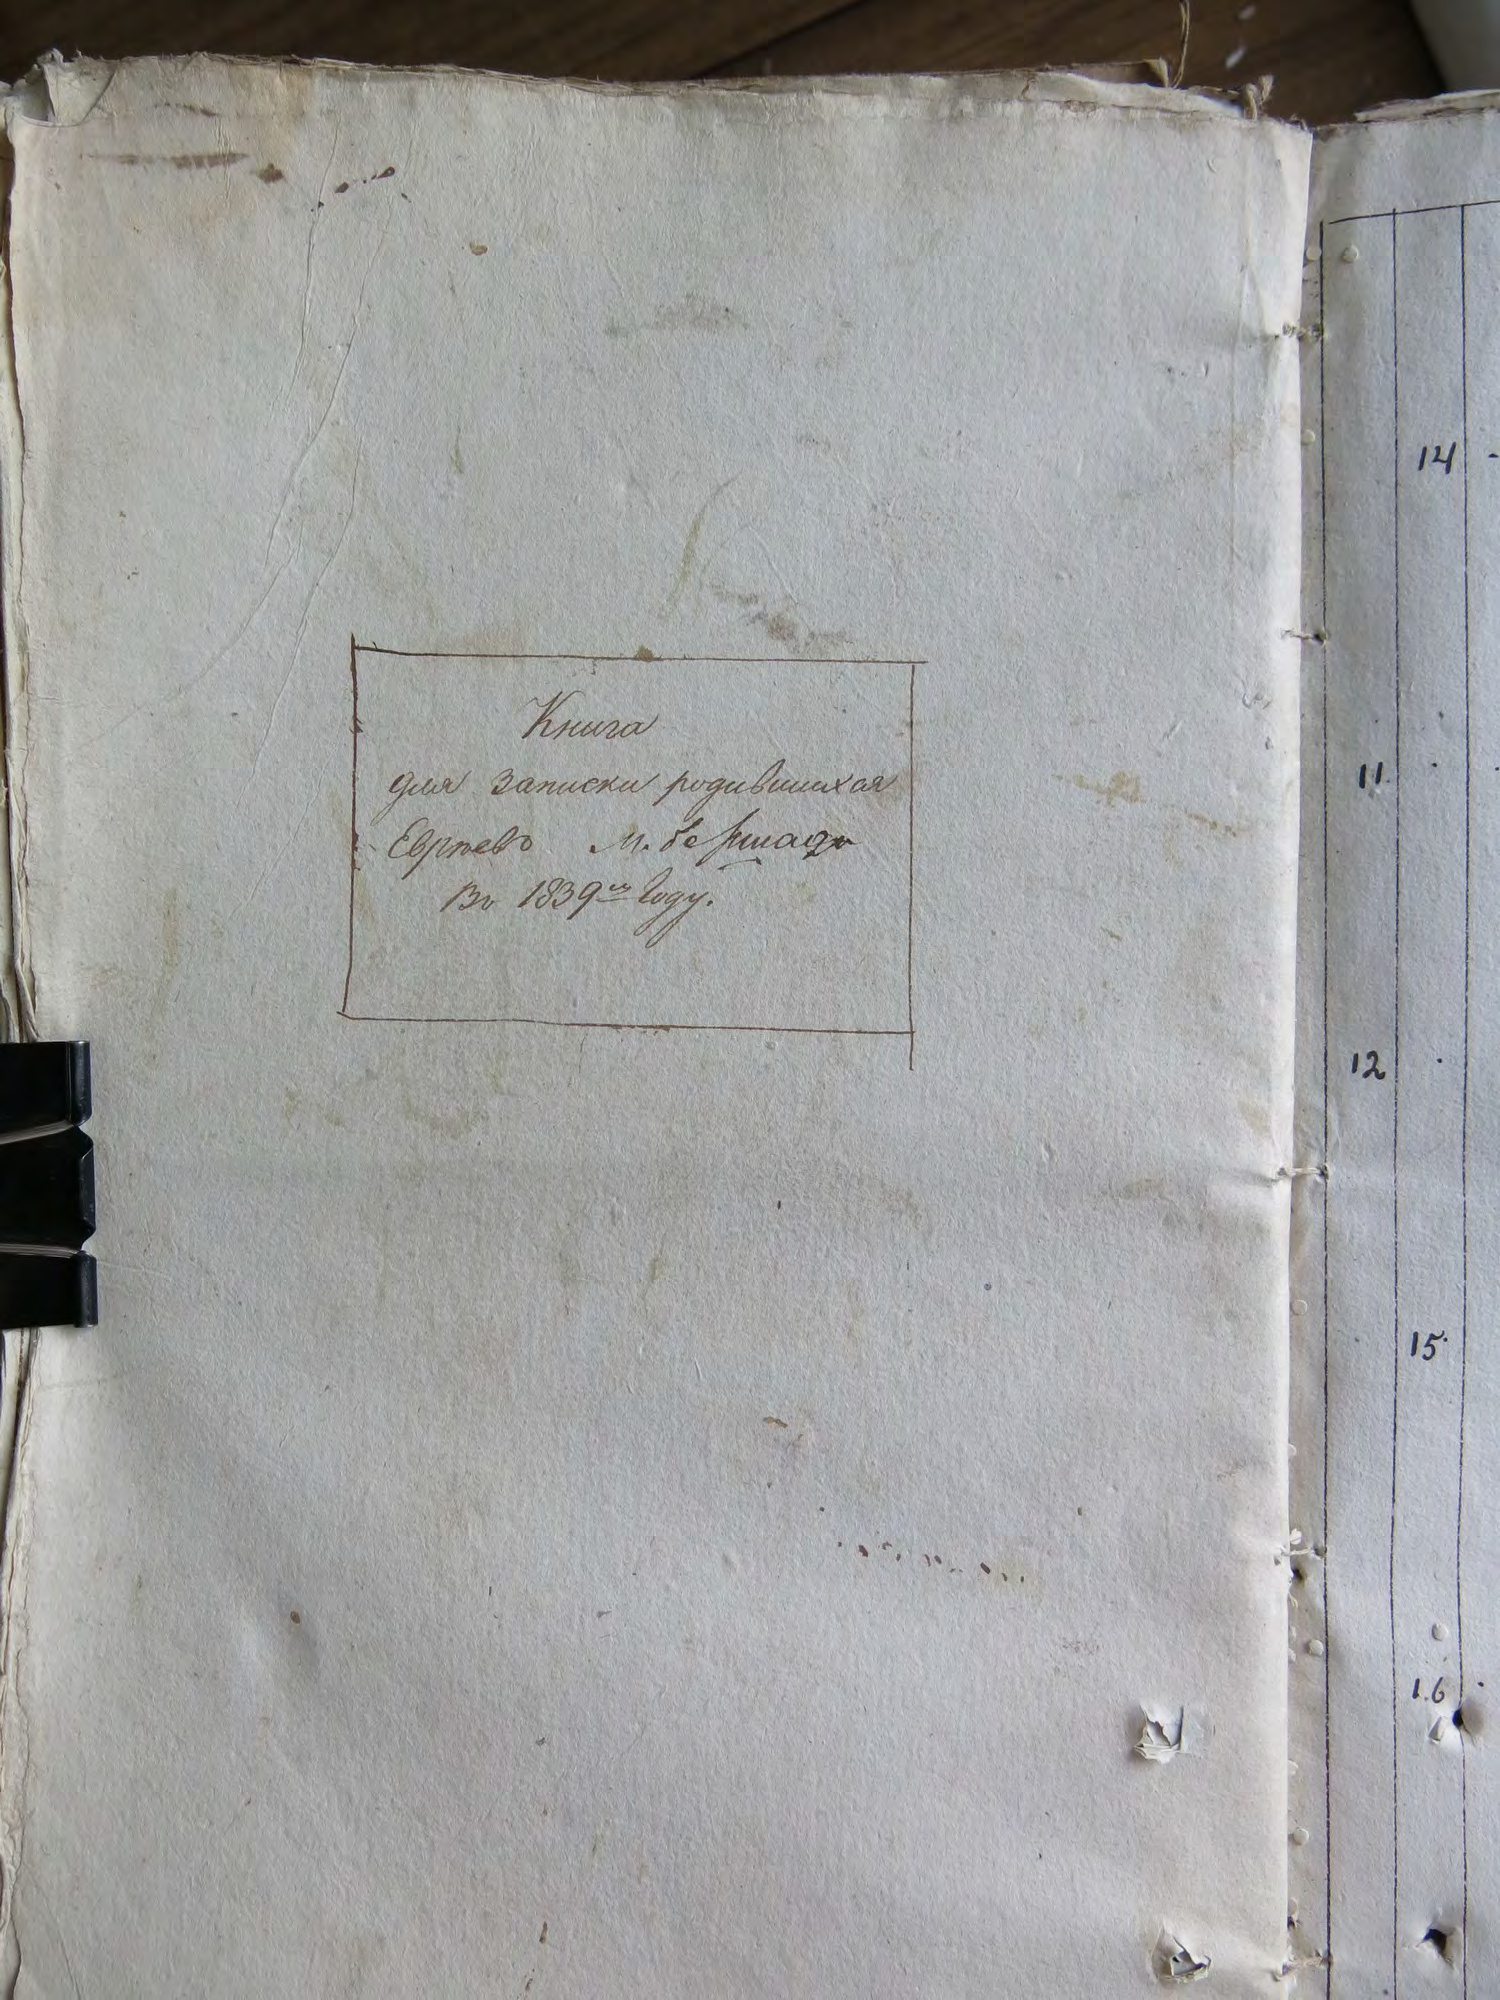 Книга
для записки родившихся
Евреевъ м. бершадъ
Въ 1839мъ Году.
14
11.
12
15.
16